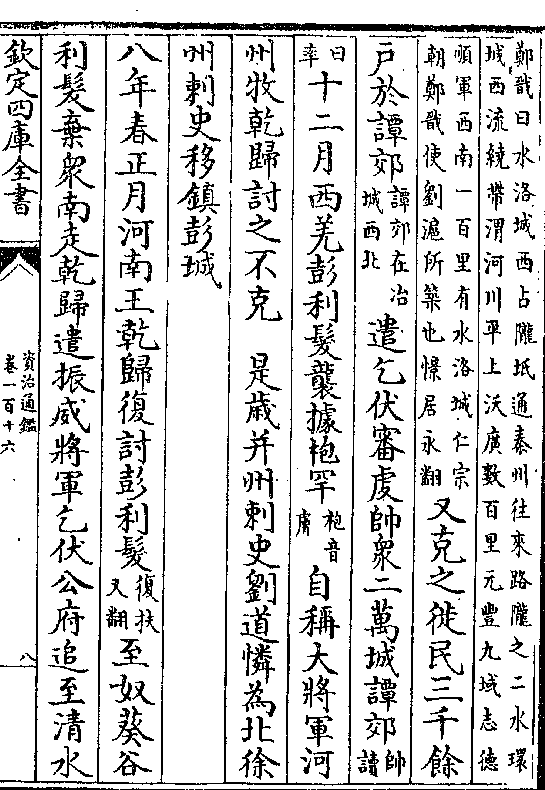 鄭戩曰水洛城西占隴坻通秦州往來路隴之二水環
城西流繞帶渭河川平上沃廣數百里元豐九域志德
順軍西南一百里有水洛城仁宗
朝鄭戩使劉滬所築也憬居永翻
又克之徙民三千餘
戶於譚郊
譚郊在冶
城西北
遣乞伏審虔帥衆二萬城譚郊
帥讀
曰率
十二月西羌彭利髮襲據枹罕
枹音
膚
自稱大將軍河
州牧乾歸討之不克 是歲并州刺史劉道憐為北徐
州刺史移鎮彭城
八年春正月河南王乾歸復討彭利髮
復扶
又翻
至奴葵谷
利髮棄衆南走乾歸遣振威將軍乞伏公府追至清水
欽定四庫全書
資治通鑑
卷一百十六
八